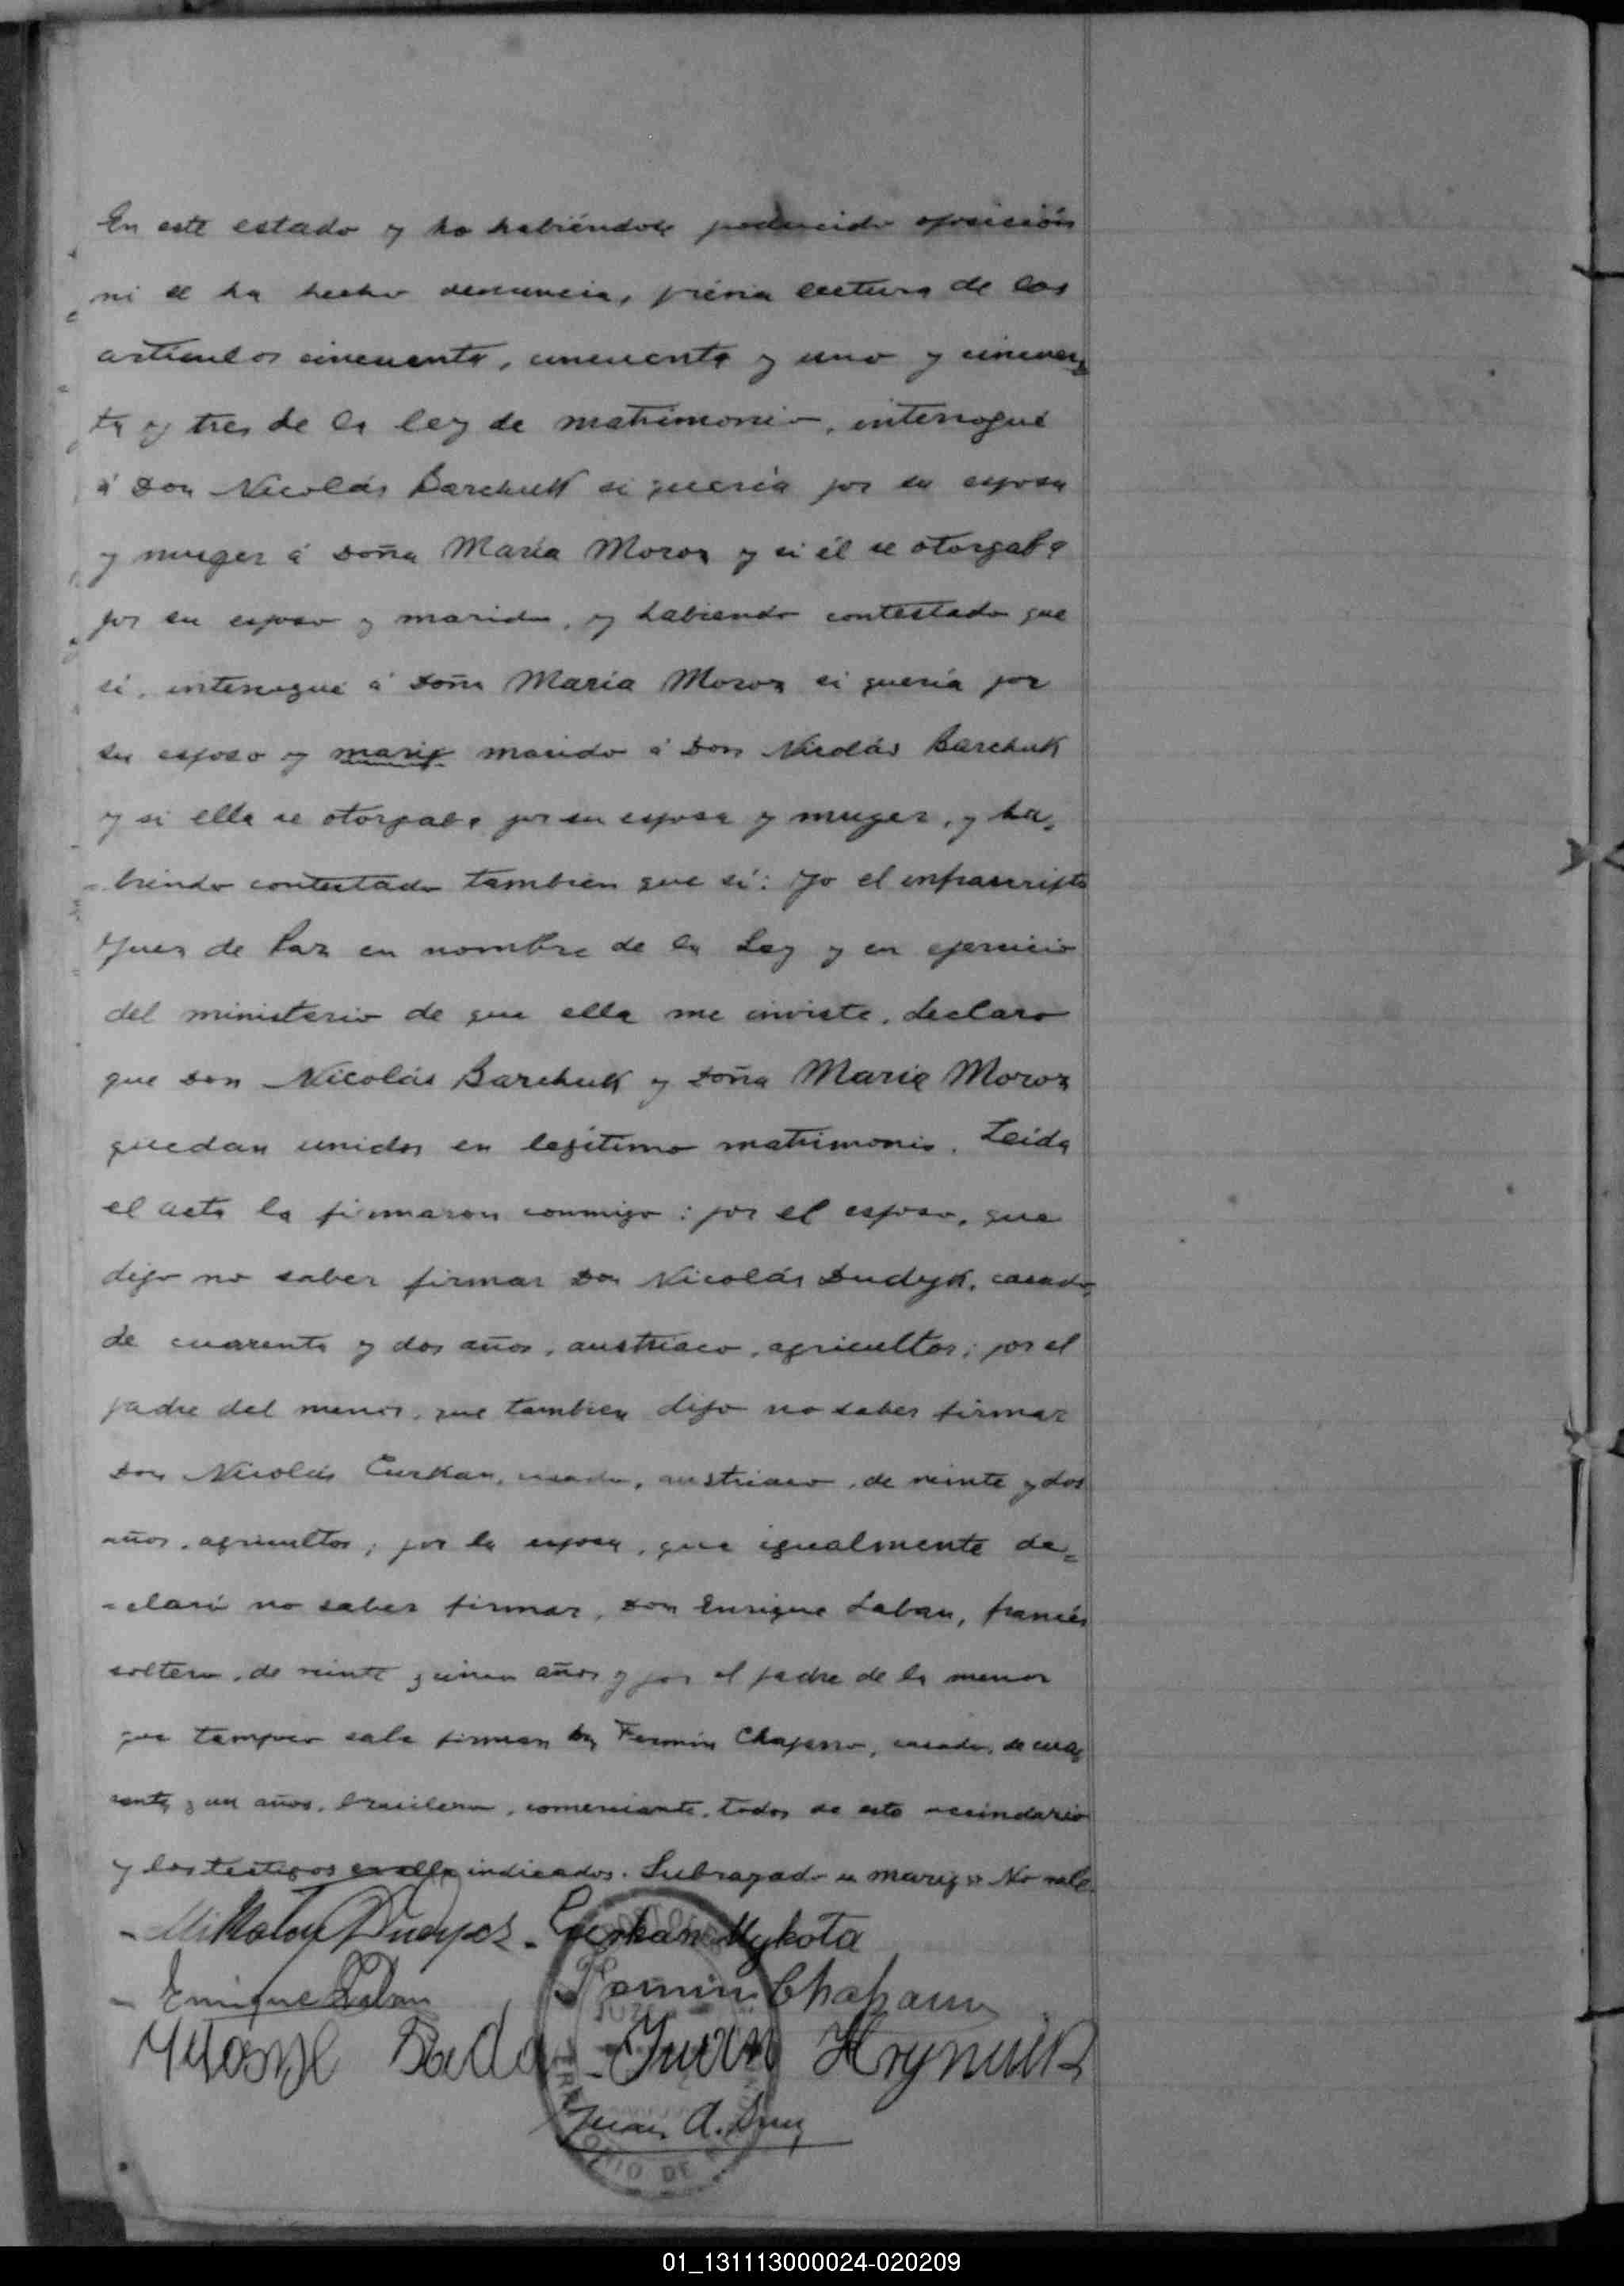 En este estado y no habiéndose producido oposición
ni se ha hecho denuncia, prévia lectura de los
artículos cincuenta, cincuenta y uno y cincuen=
ta y tres de la ley de matrimonio, interrogué
á Don Nicolás Barchuk si quería por su esposa
y muger á Doña María Moroz y si él se otorgaba
por su esposo y marido, y habiendo contestado que
sí, interrogué á Doña María Moroz si quería por
su esposo y marig marido á Don Nicolás Barchuk
y si ella se otorgaba por su esposa y muger, y ha=
=biendo contestado tambien que sí: Yo el infrascripto
Juez de Paz en nombre de la Ley y en ejercicio
del ministerio de que ella me inviste, declaro
que Don Nicolás Barchuk y Doña María Moroz
quedan unidos en legítimo matrimonio. Leida
el acta la firmaron conmigo: por el esposo, que
dijo no saber firmar Don Nicolás Dudyk, casado,
de cuarenta y dos años, austriaco, agricultor; por el
padre del menor, que tambien dijo no saber firmar
Don Nicolás Curkan, casado, austriaco, de veinte y dos
años, agricultor; por la esposa, que igualmente de=
=claró no saber firmar, Don Enrique Laban, francés
soltero, de veinte y cinco años y por el padre de la menor
que tampoco sabe firmar Don Fermín Chaparro, casado, de cua=
renta y un años, brasilero, comerciante, todos de este vecindario
y los testigos en ella indicados. Subrayado "marig" No vale.
- Mikolay Dudyck - Curkan Mykota
- Enrique Laban Fermin Chaparro
Bada - Iwan Hrynuik
Juan A.